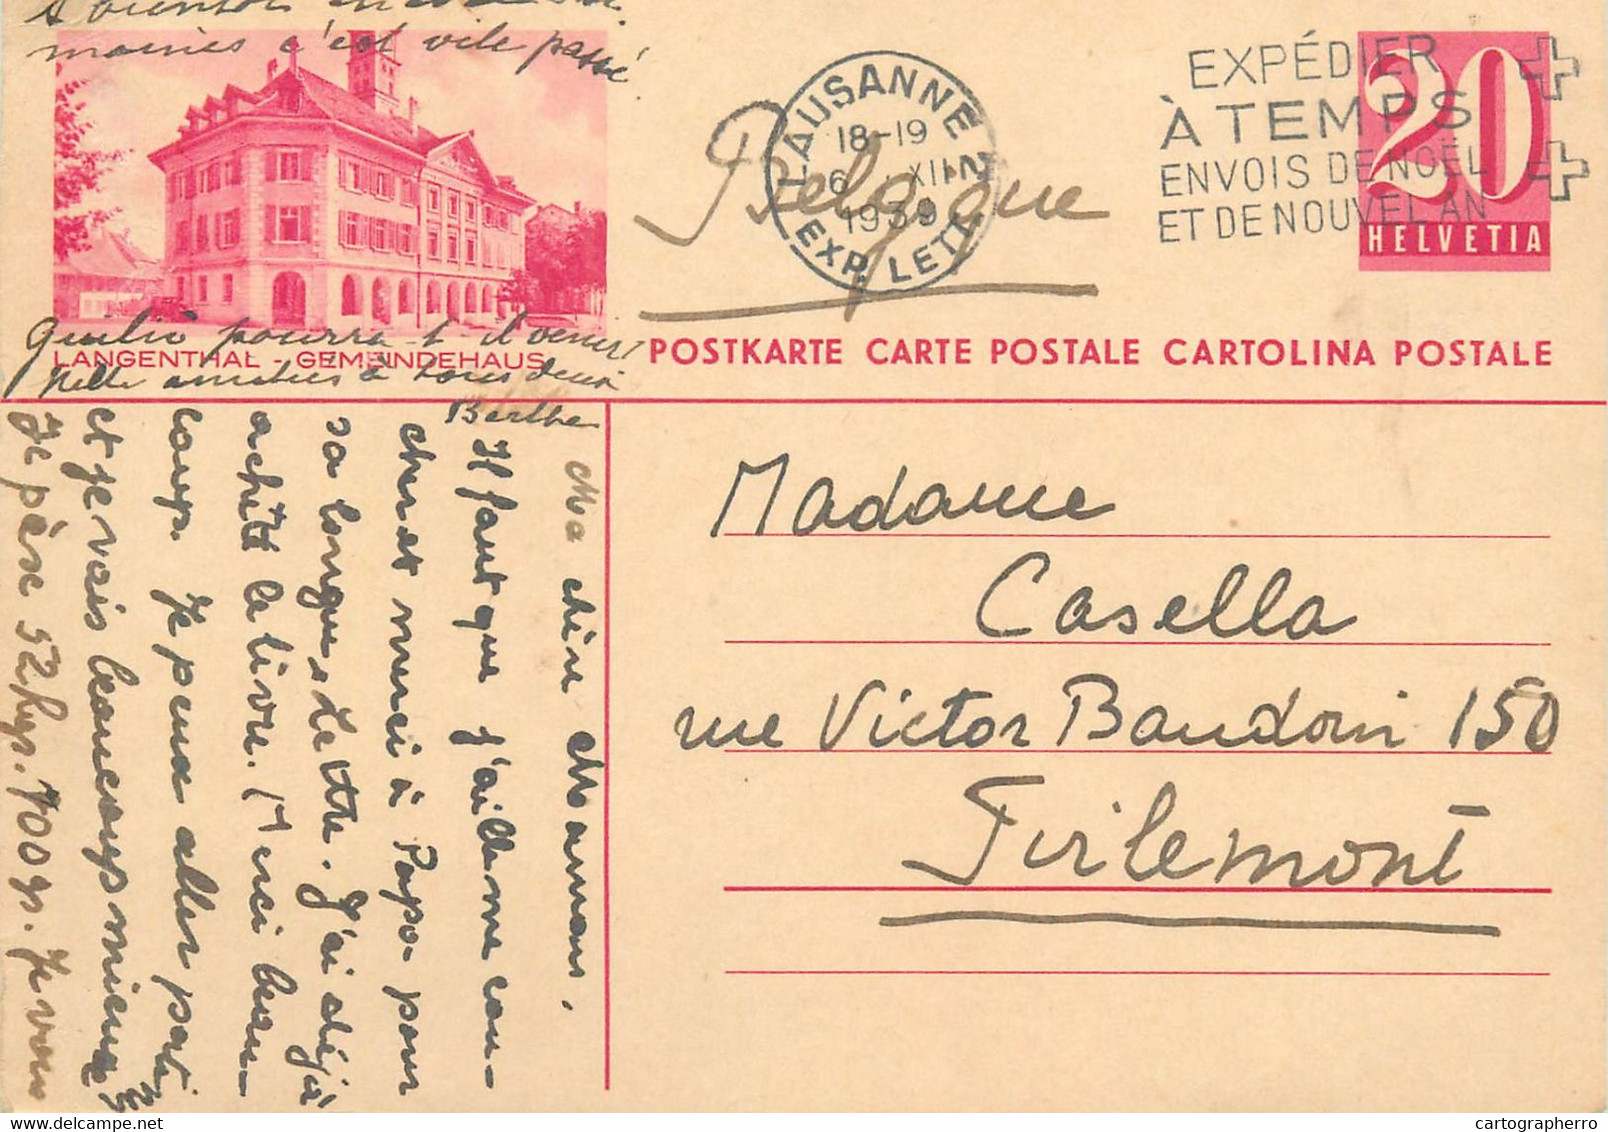 maines c'est vite passé
LANGENTHAL - GEMEINDEHAUS
pourra-t-il venir?
Mille amitiés à tous deux
Berthe
Belgique
LAUSANNE 2
18-19
6 XII
1939
EXP. LETT.
EXPÉDIER
À TEMPS
ENVOIS DE NOËL
ET DE NOUVEL AN
20
HELVETIA
POSTKARTE CARTE POSTALE CARTOLINA POSTALE
Ma chère Maman,
Il faut que j'aille me cou-
cher et merci à Papa pour
sa longue lettre. J'ai déjà
acheté le livre. Merci beau-
coup. Je peux aller partout
et je vais beaucoup mieux
Je pèse 52 kgr. 700 gr. Je vous
Madame
Casella
rue Victor Baudoin 150
Tirlemont
cartographerro